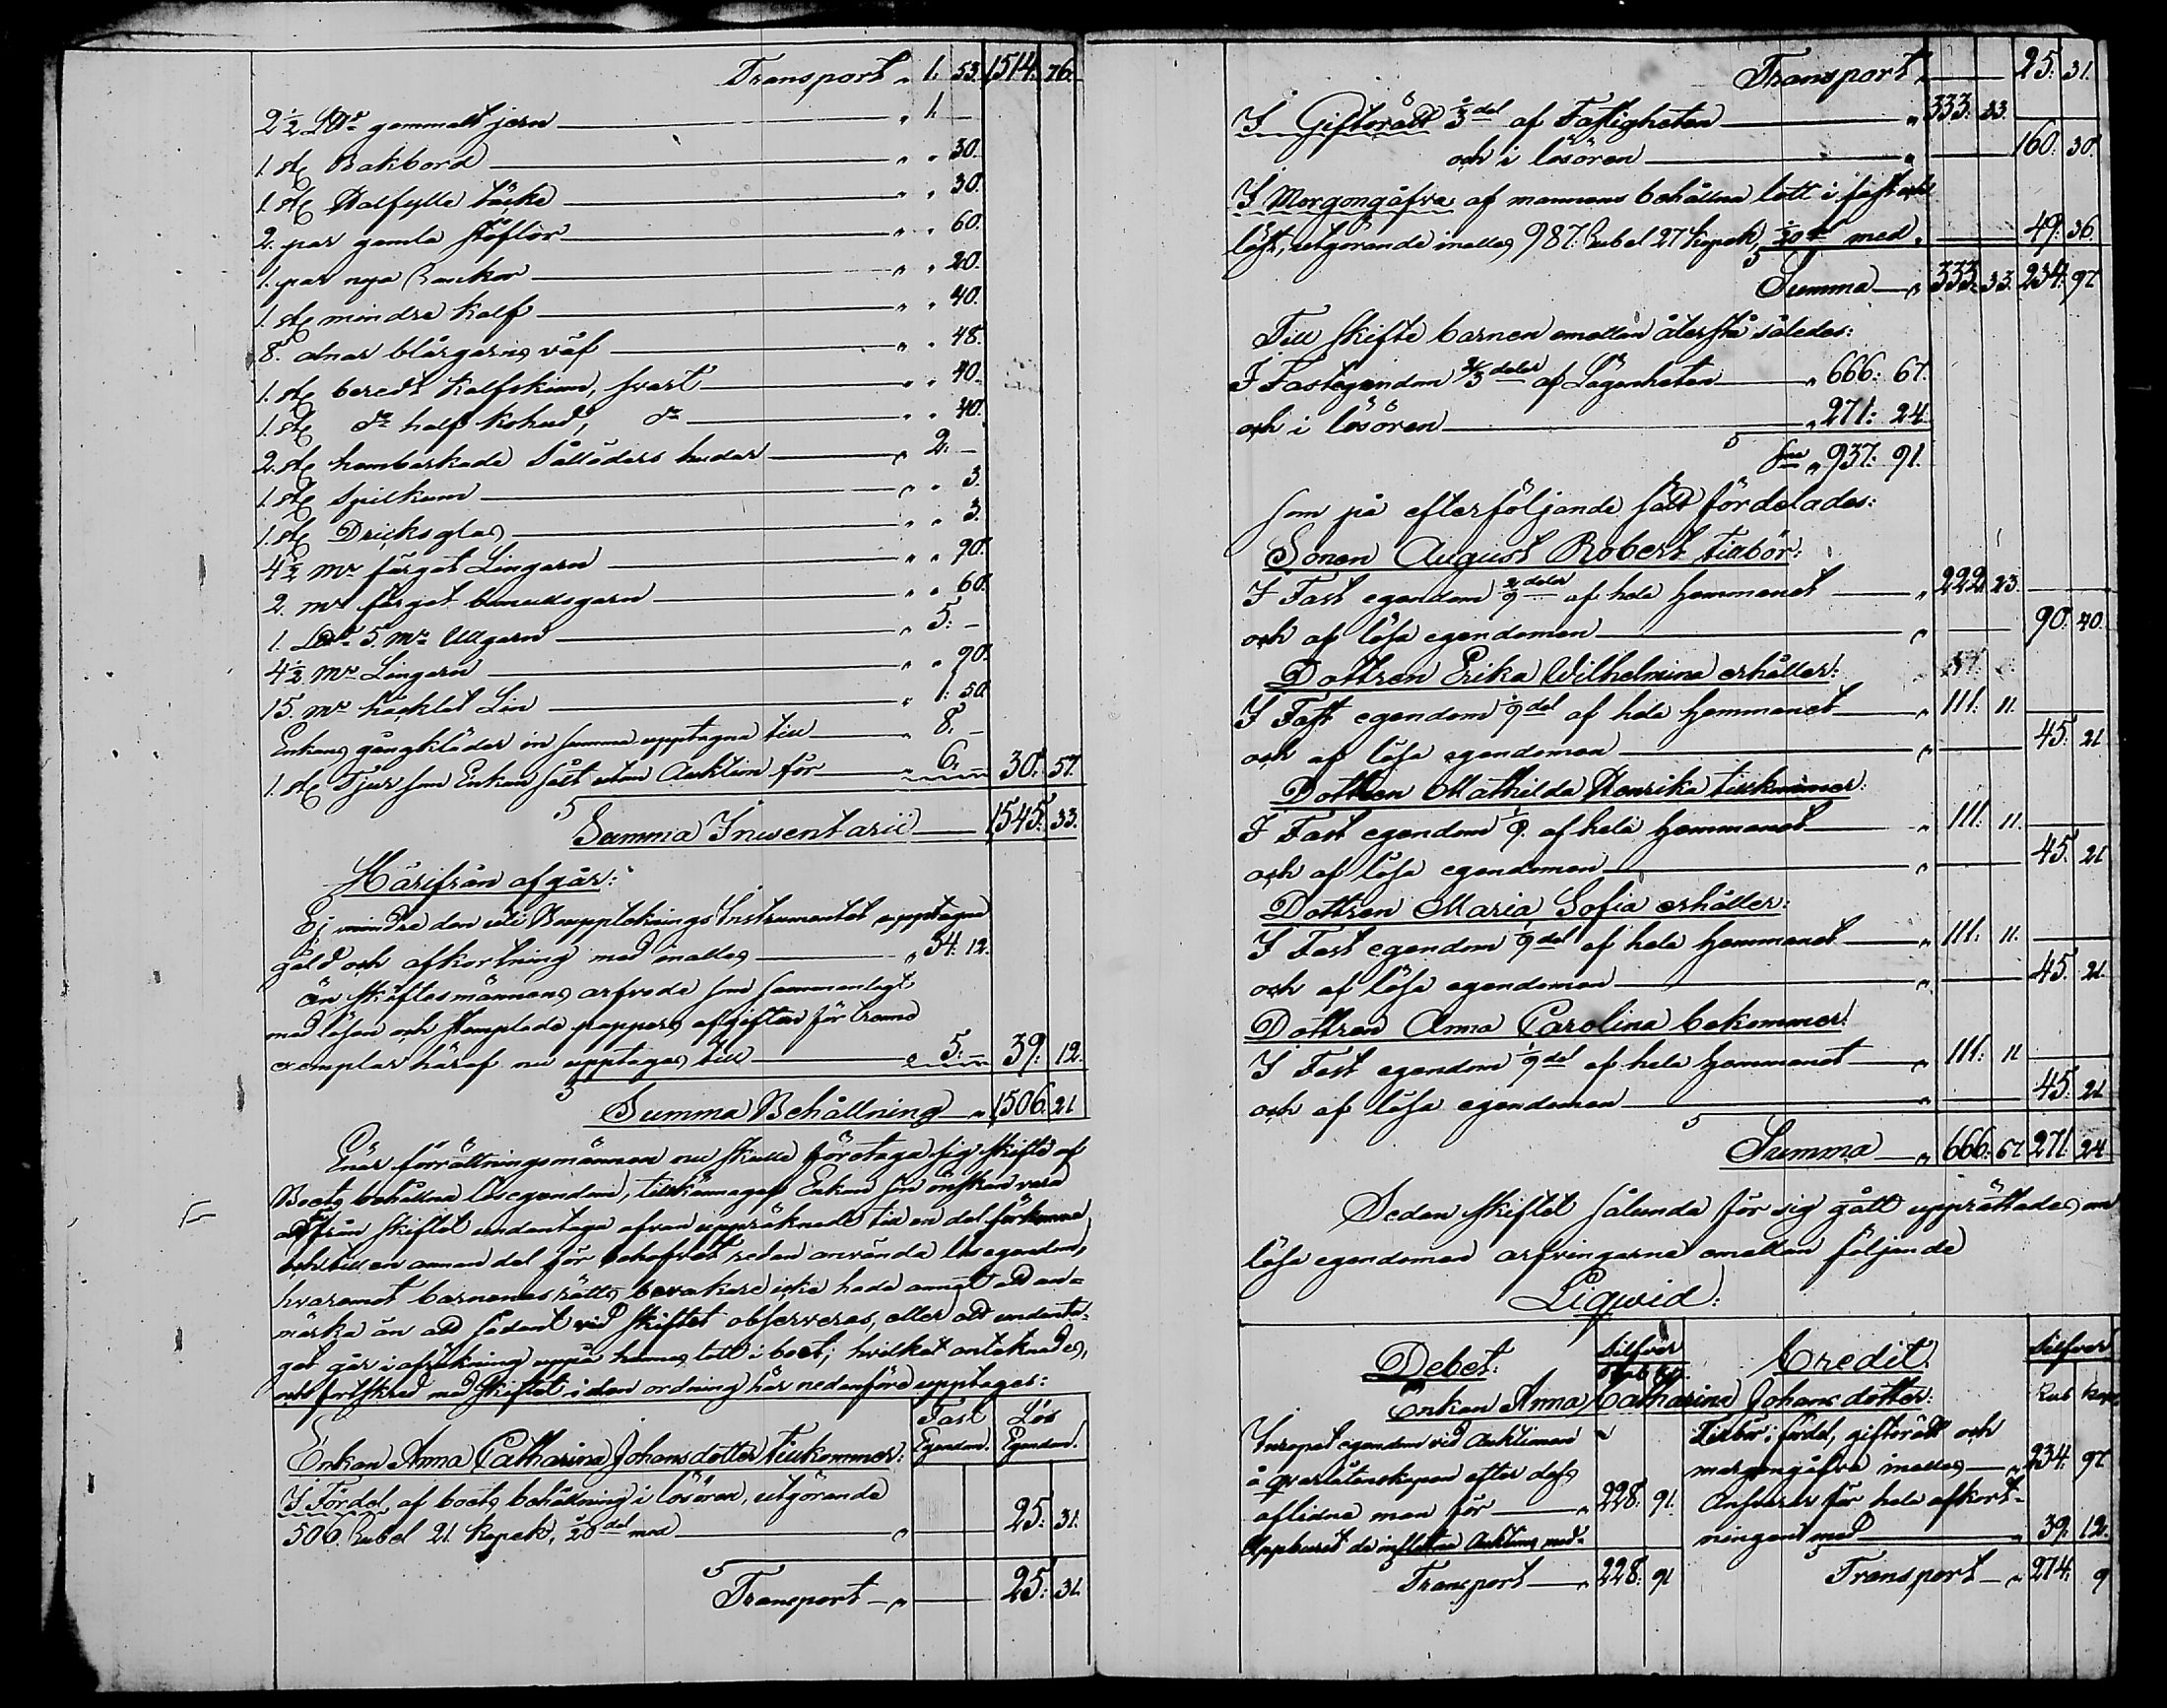 Transport " 1. 53. 1514. 76.
2 1/2 L℔ gammalt jern " 1. –
1. st Bakbord " " 30.
1. st Halfylle täcke " " 30.
2. par gamla stöflor " " 60.
1. par nya " " 20.
1. st mindre Kalf " " 40.
8. alnar blårgarns väf " " 48.
1. st beredt Kalfskinn, svart " " 40.
1. st do half Kohud, do " " 40.
2. st hembarkade Sålläders hudar " 2. –
1. st Spilkum " " 3.
1. st Dricksglas " " 3.
4 1/2 Mr färgat Lingarn " " 90.
2. mr färgat bomullsgarn " " 60.
1. L℔ 5. Mr Ullgarn " 5. –
4 1/2 Mr Lingarn " " 90.
15. Mr häcklat Lin " 1. 50.
Enkans gångkläder in summa upptagna till " 8. –
1. st Tjur som Enkan fått utan Auktion för " 6. – 30. 57.
Summa Inventarii 1545. 33.
Härifrån afgår:
Ej mindre den uti Bouppteknings Instrumentet upptagna
gäld och afkortning med inalles " 34. 12.
än skiftesmännens arfvode som sammanlagt
med lösen och Stemplade pappers afgiften för trenne
exemplar häraf nu upptages till " 5. – 39. 12.
Summa Behållning " 1506. 21
Enär förrättningsmännen nu skulle företaga sig skifte af
Boets behållna lösegendom, tillkännagaf Enkan sin önskan vara
att från skiftet undantaga ofvan uppräknade till en del förkomna
och till en annan del för behofvet redan använda lösegendom,
hvaremot barnenas rätts bevakare icke hade annat att an-
märka än att sådant vid skiftet observeras, eller att undanta-
get går i afräkning uppå hennes lott i boet; hvilket antecknades,
och fortskred med skiftet i den ordning här nedanföre upptages:
Fast Egendom. Lös Egendom.
Enkan Anna Catharina Johansdotter tillkommer:
I Fördel, af boets behållning i lösören, utgörande
506. Rubel 21. Kopek, 1/20 del med " 25. 31.
Transport " 25. 31.
Transport " 25. 31.
I Giftorätt 1/3 del af Fastigheten " 333. 33.
och i lösören " 160. 30.
I Morgongåfva af mannens behållna lott i fast och
löst, utgörande inalles 987. Rubel 27 Kopek, 1/20 del med " 49. 36.
Summa " 333. 33. 234. 97
Till skifte barnen emellan återstå således:
I Fastegendom 2/3 delar af Lägenheten " 666. 67.
och i lösören " 271. 24.
Sma " 937. 91.
som på efterföljande sätt fördelades:
Sonen August Robert tillbör:
I Fast egendom 2/9 delar af hela hemmanet " 222. 23.
och af lösa egendomen " 90. 40.
Dottren Erika Wilhelmina erhåller:
I Fast egendom 1/9 del af hela hemmanet " 111. 11.
och af lösa egendomen " 45. 21
Dottren Mathilda Henrika tillkommer:
I Fast egendom 1/9. af hela hemmanet " 111. 11.
och af lösa egendomen " 45. 21
Dottren Maria Sofia erhåller:
I Fast egendom 1/9 del af hela hemmanet " 111. 11.
och af lösa egendomen " 45. 21.
Dottren Anna Carolina bekommer:
I Fast egendom 1/9 del af hela hemmanet " 111. 11
och af lösa egendomen " 45. 21
Summa " 666. 67 271. 24
Sedan skiftet sålunda för sig gått upprättades om
lösa egendomen arfvingarne emellan följande
Liqwid:
Debet: Silfver Credit. Silfver
Rub Kop. Rub Kop.
Enkan Anna Catharina Johansdotter:
Inropat egendom vid Auktionen
å qvarlåtenskapen efter dess
aflidne man för " 228. 91.
Uppburit de influtna Auktions med-
Transport " 228. 91
Tillbör i fördel, giftorätt och
morgongåfva inalles " 234. 97
Ansvarar för hela afkort-
ningen med " 39. 12.
Transport " 274. 9